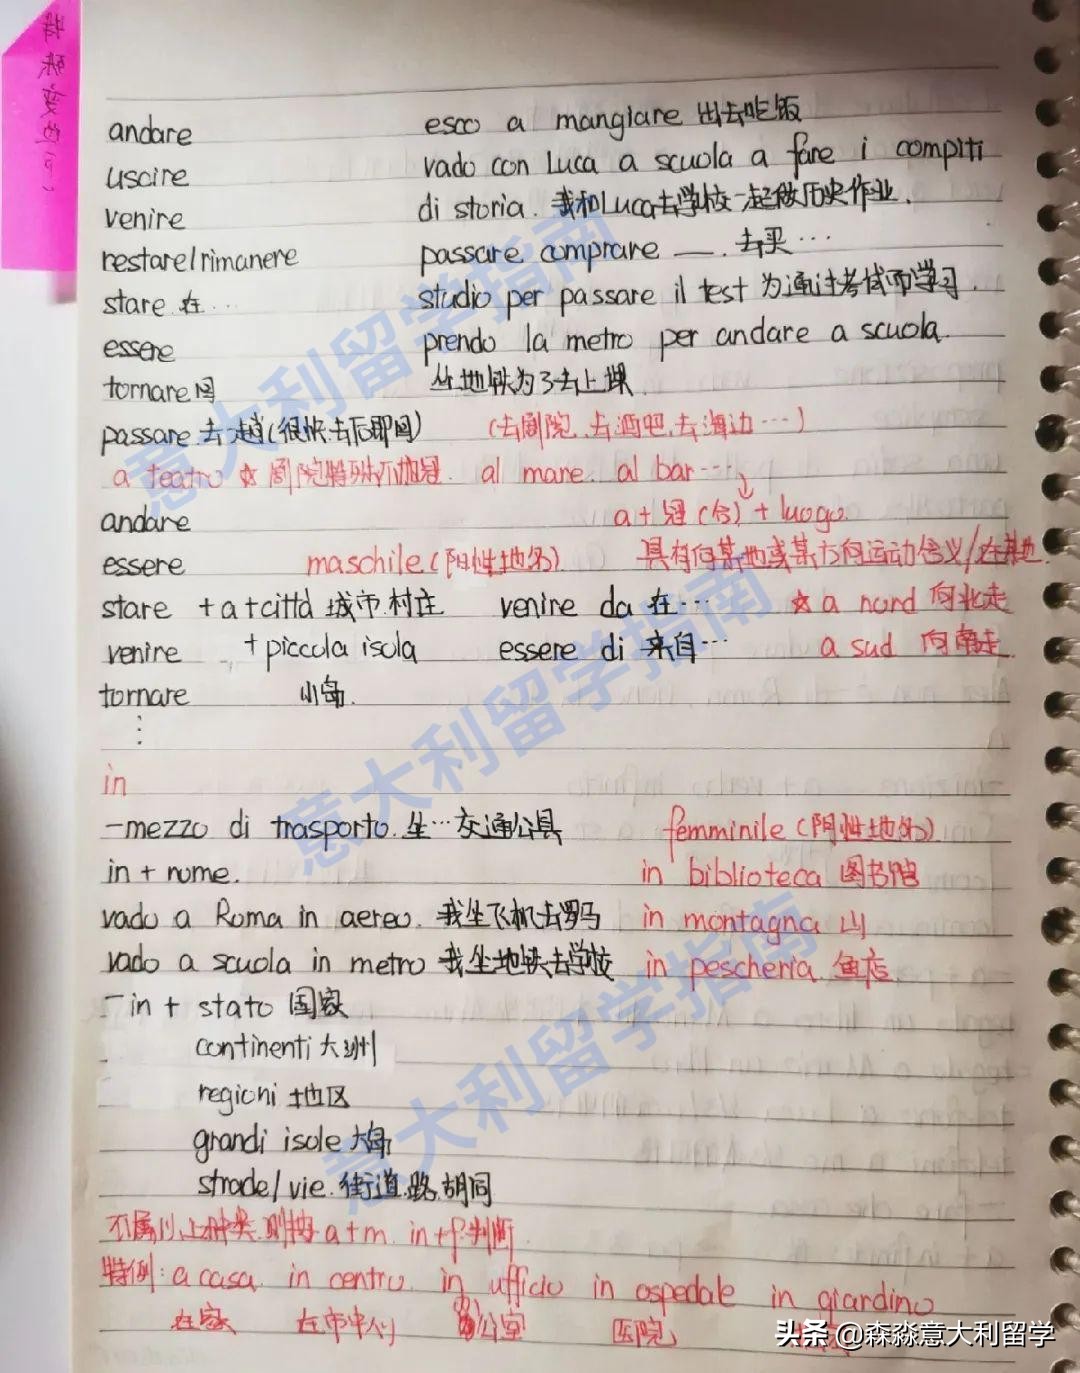 andare esco a mangiare 出去吃饭
uscire vado con Luca a scuola a fare i compiti
venire di storia. 我和Luca去学校一起做历史作业.
restare/rimanere passare comprare —. 去买…
stare 在… studio per passare il test 为通过考试而学习.
essere prendo la metro per andare a scuola.
tornare 回 坐地铁为了去上课
passare 去一趟(很快去后即回) (去剧院、去酒吧、去海边…)
a teatro ☆ 剧院特殊不加冠. al mare. al bar…
andare a + 冠(合) + luogo.
essere maschile (阳性地名) 具有向某地或某方向运动含义/在某地.
stare + a + città 城市.村庄 venire da 在… ☆ a nord 向北走
venire + piccola isola essere di 来自… a sud 向南走.
tornare 小岛.
⋮
in
-mezzo di trasporto. 坐…交通公具 femminile (阴性地名)
in + nome. in biblioteca 图书馆
vado a Roma in aereo. 我坐飞机去罗马 in montagna 山
vado a scuola in metro 我坐地铁去学校 in pescheria 鱼店
- in + stato 国家
continenti 大洲
regioni 地区
grandi isole 大岛
strade/vie. 街道.路.胡同
不属以上种类,则按 a+m. in+f. 判断.
特例: a casa. in centro. in ufficio in ospedale in giardino
在家 在市中心 办公室 医院
意大利留学指南
意大利留学指南
意大利留学指南
头条 @森淼意大利留学